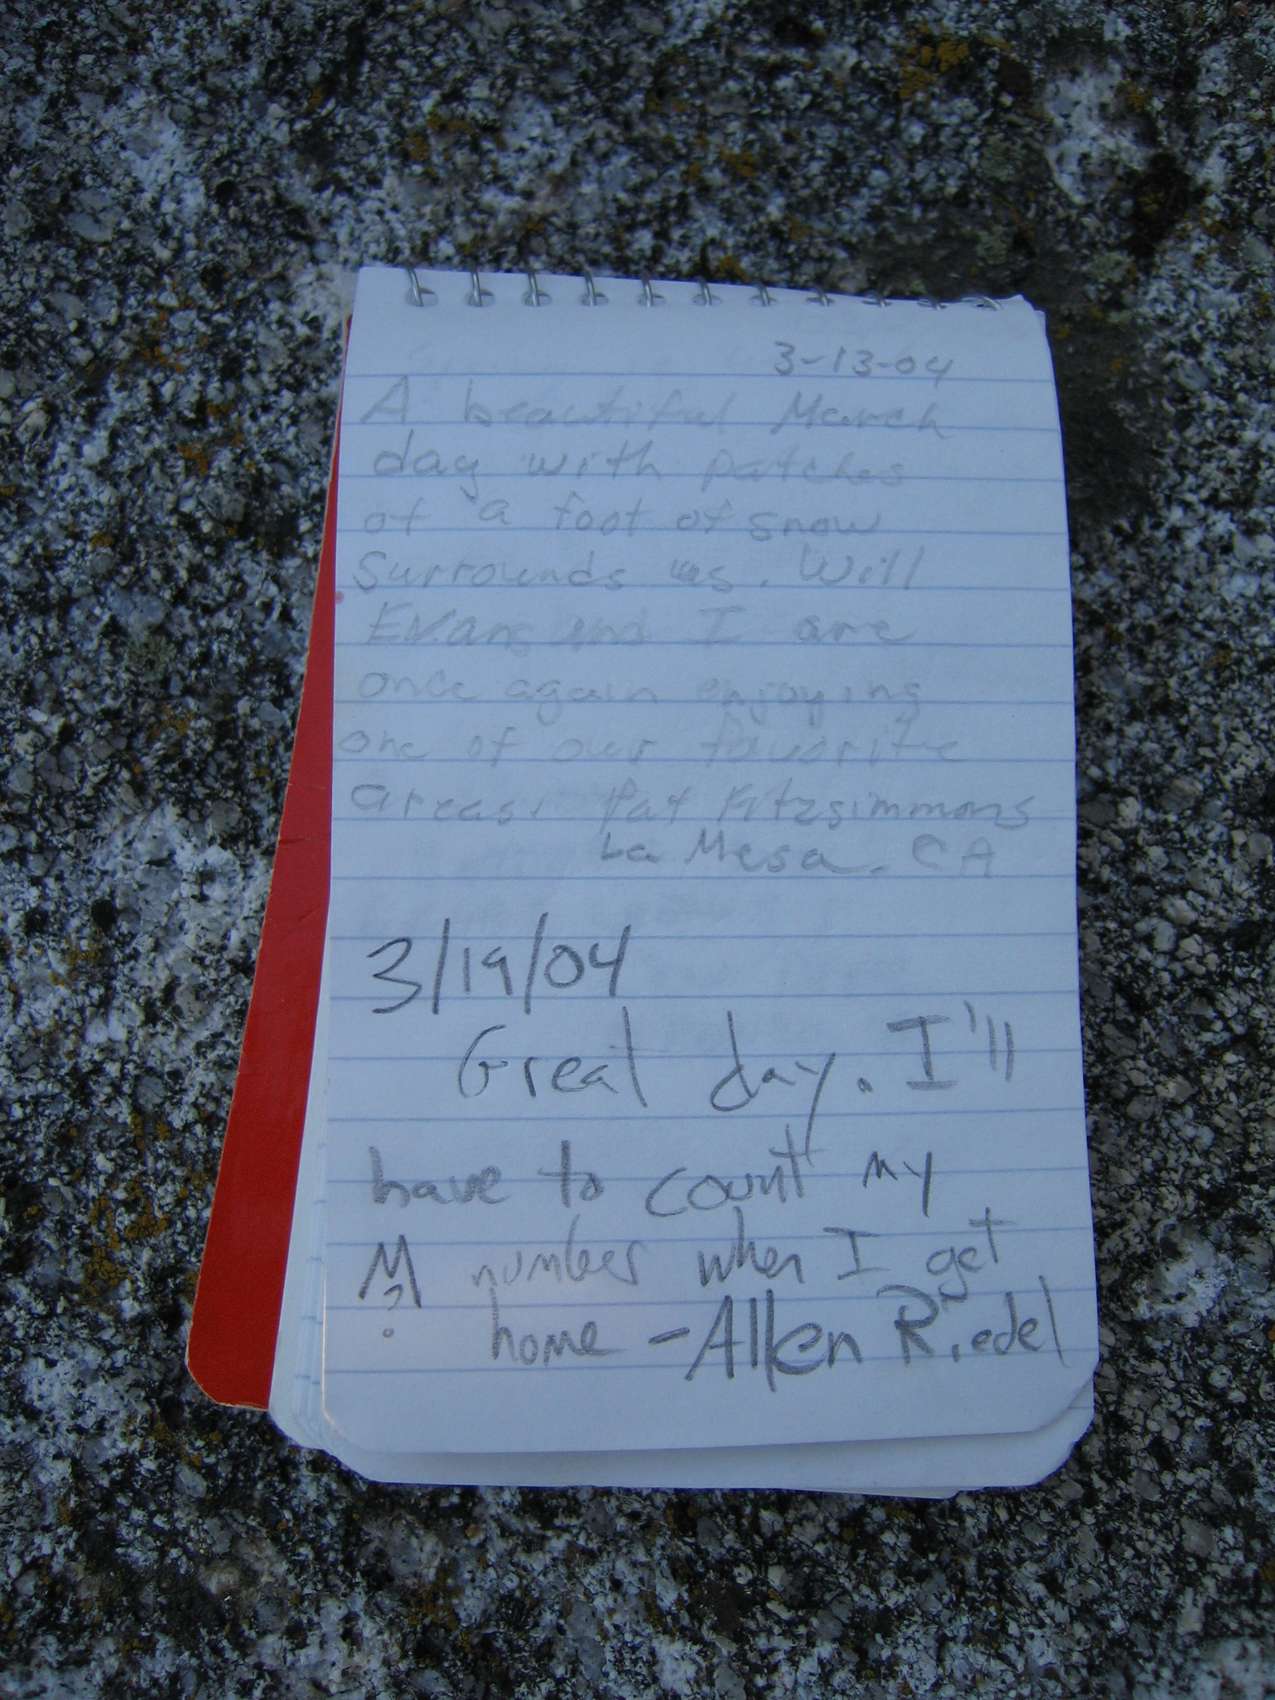 3-13-04
A beautiful March
day with patches
of a foot of snow
Surrounds us. Will
Evans and I are
once again enjoying
one of our favorite
areas. Pat Fitzsimmons
La Mesa, CA
3/19/04
Great day. I'll
have to count my
M number when I get
? home - Allen Riedel